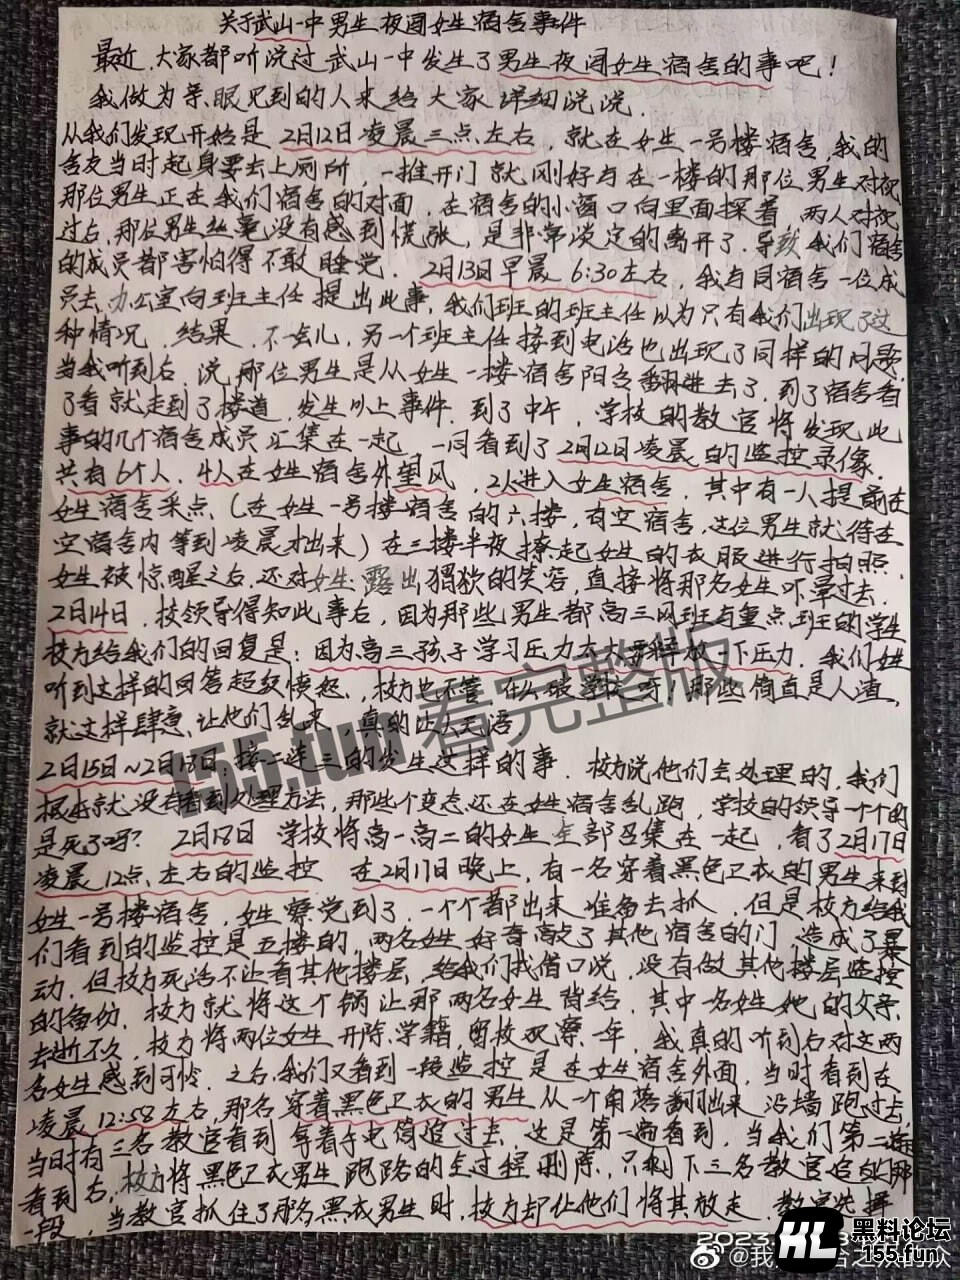 关于武山一中男生夜闯女生宿舍事件
最近,大家都听说过武山一中发生了男生夜闯女生宿舍的事吧!
我做为亲眼见到的人来给大家详细说说.
从我们发现开始是2月12日凌晨三点左右,就在女生一号楼宿舍,我的
舍友当时起身要去上厕所,一推开门就刚好与在一楼的那位男生对视
那位男生正在我们宿舍的对面,在宿舍的小窗口向里面探着,两人对视
过后,那位男生丝毫没有感到慌张,是非常淡定的离开了.导致我们宿舍
的成员都害怕得不敢睡觉.2月13日早晨6:30左右,我与同宿舍一位成
员去办公室向班主任提出此事,我们班的班主任以为只有我们出现了这
种情况.结果,不一会儿,另一个班主任接到电话也出现了同样的问题,
当我听到后,说那位男生是从女生一楼宿舍阳台翻进去了,到了宿舍看
了看就走到了楼道,发生以上事件.到了中午,学校的教官将发现此
事的几个宿舍成员汇集在一起,一同看到了2月12日凌晨的监控录像,
共有6个人,4人在女生宿舍外望风,2人进入女生宿舍,其中有一人提前在
女生宿舍采点(在女生一号楼宿舍的六楼,有空宿舍,这位男生就待在
空宿舍内等到凌晨才出来)在三楼半夜撩起女生的衣服进行拍照,
女生被惊醒之后,还对女生露出猥欲的笑容,直接将那名女生吓晕过去.
2月14日,校领导得知此事后,因为那些男生都高三网班与重点班的学生
校方给我们的回复是:因为高三孩子学习压力太大要释放一下压力.我们女生
听到这样的回答超级愤怒,校方也不管,什么破学校呀!那些简直是人渣,
就这样肆意,让他们乱来,真的让人无语,
2月15日~2月17日接二连三的发生这样的事.校方说他们会处理的,我们
根本就没有看到处理方法,那些个变态还在女生宿舍乱跑,学校的领导一个个的
是死了吗?2月18日学校将高一高二的女生全部召集在一起,看了2月17日
凌晨12点左右的监控 在2月17日晚上,有一名穿着黑色卫衣的男生来到
女生一号楼宿舍,女生察觉到了,一个个都出来准备去抓,但是校方给我
们看到的监控是五楼的,两名女生好奇敲了其他宿舍的门,造成了暴
动,但校方死活不让看其他楼层,给我们找借口说,没有做其他楼层监控
的备份,校方就将这个锅让那两名女生背给,其中一名女生她的父亲
去逝不久,校方将两位女生开除学籍,留校观察一年,我真的听到后对这两
名女生感到可怜.之后,我们又看到一段监控是在女生宿舍外面,当时看到在
凌晨12:58左右,那名穿着黑色卫衣的男生从一个角落翻出来沿墙跑过去,
当时有三名教官看到拿着手电筒追过去,这是第一遍看到,当我们第二遍
看到后,校方将黑色卫衣男生跑路的全过程删除,只剩下三名教官追的那
一段,当教官抓住了那名黑衣男生时,校方却让他们将其放走,教官选择
155.fun看完整版
黑料论坛
155.fun